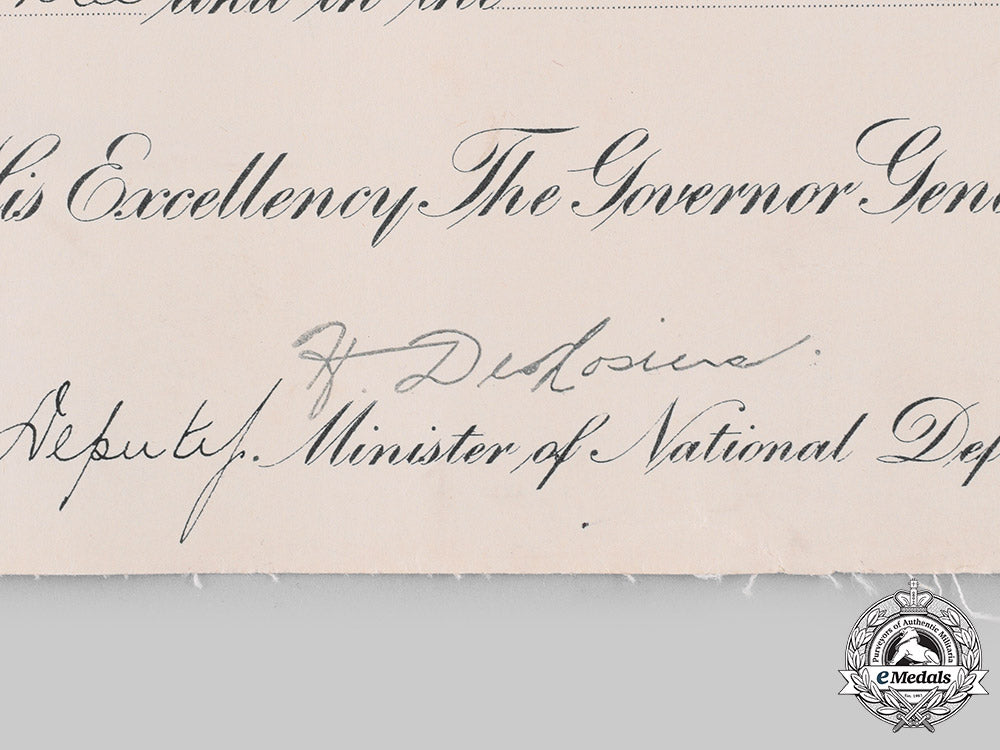 and in the
His Excellency, The Governor Gen
H. DesRosiers
Deputy. Minister of National Def
Purveyors of Authentic Militaria
eMedals